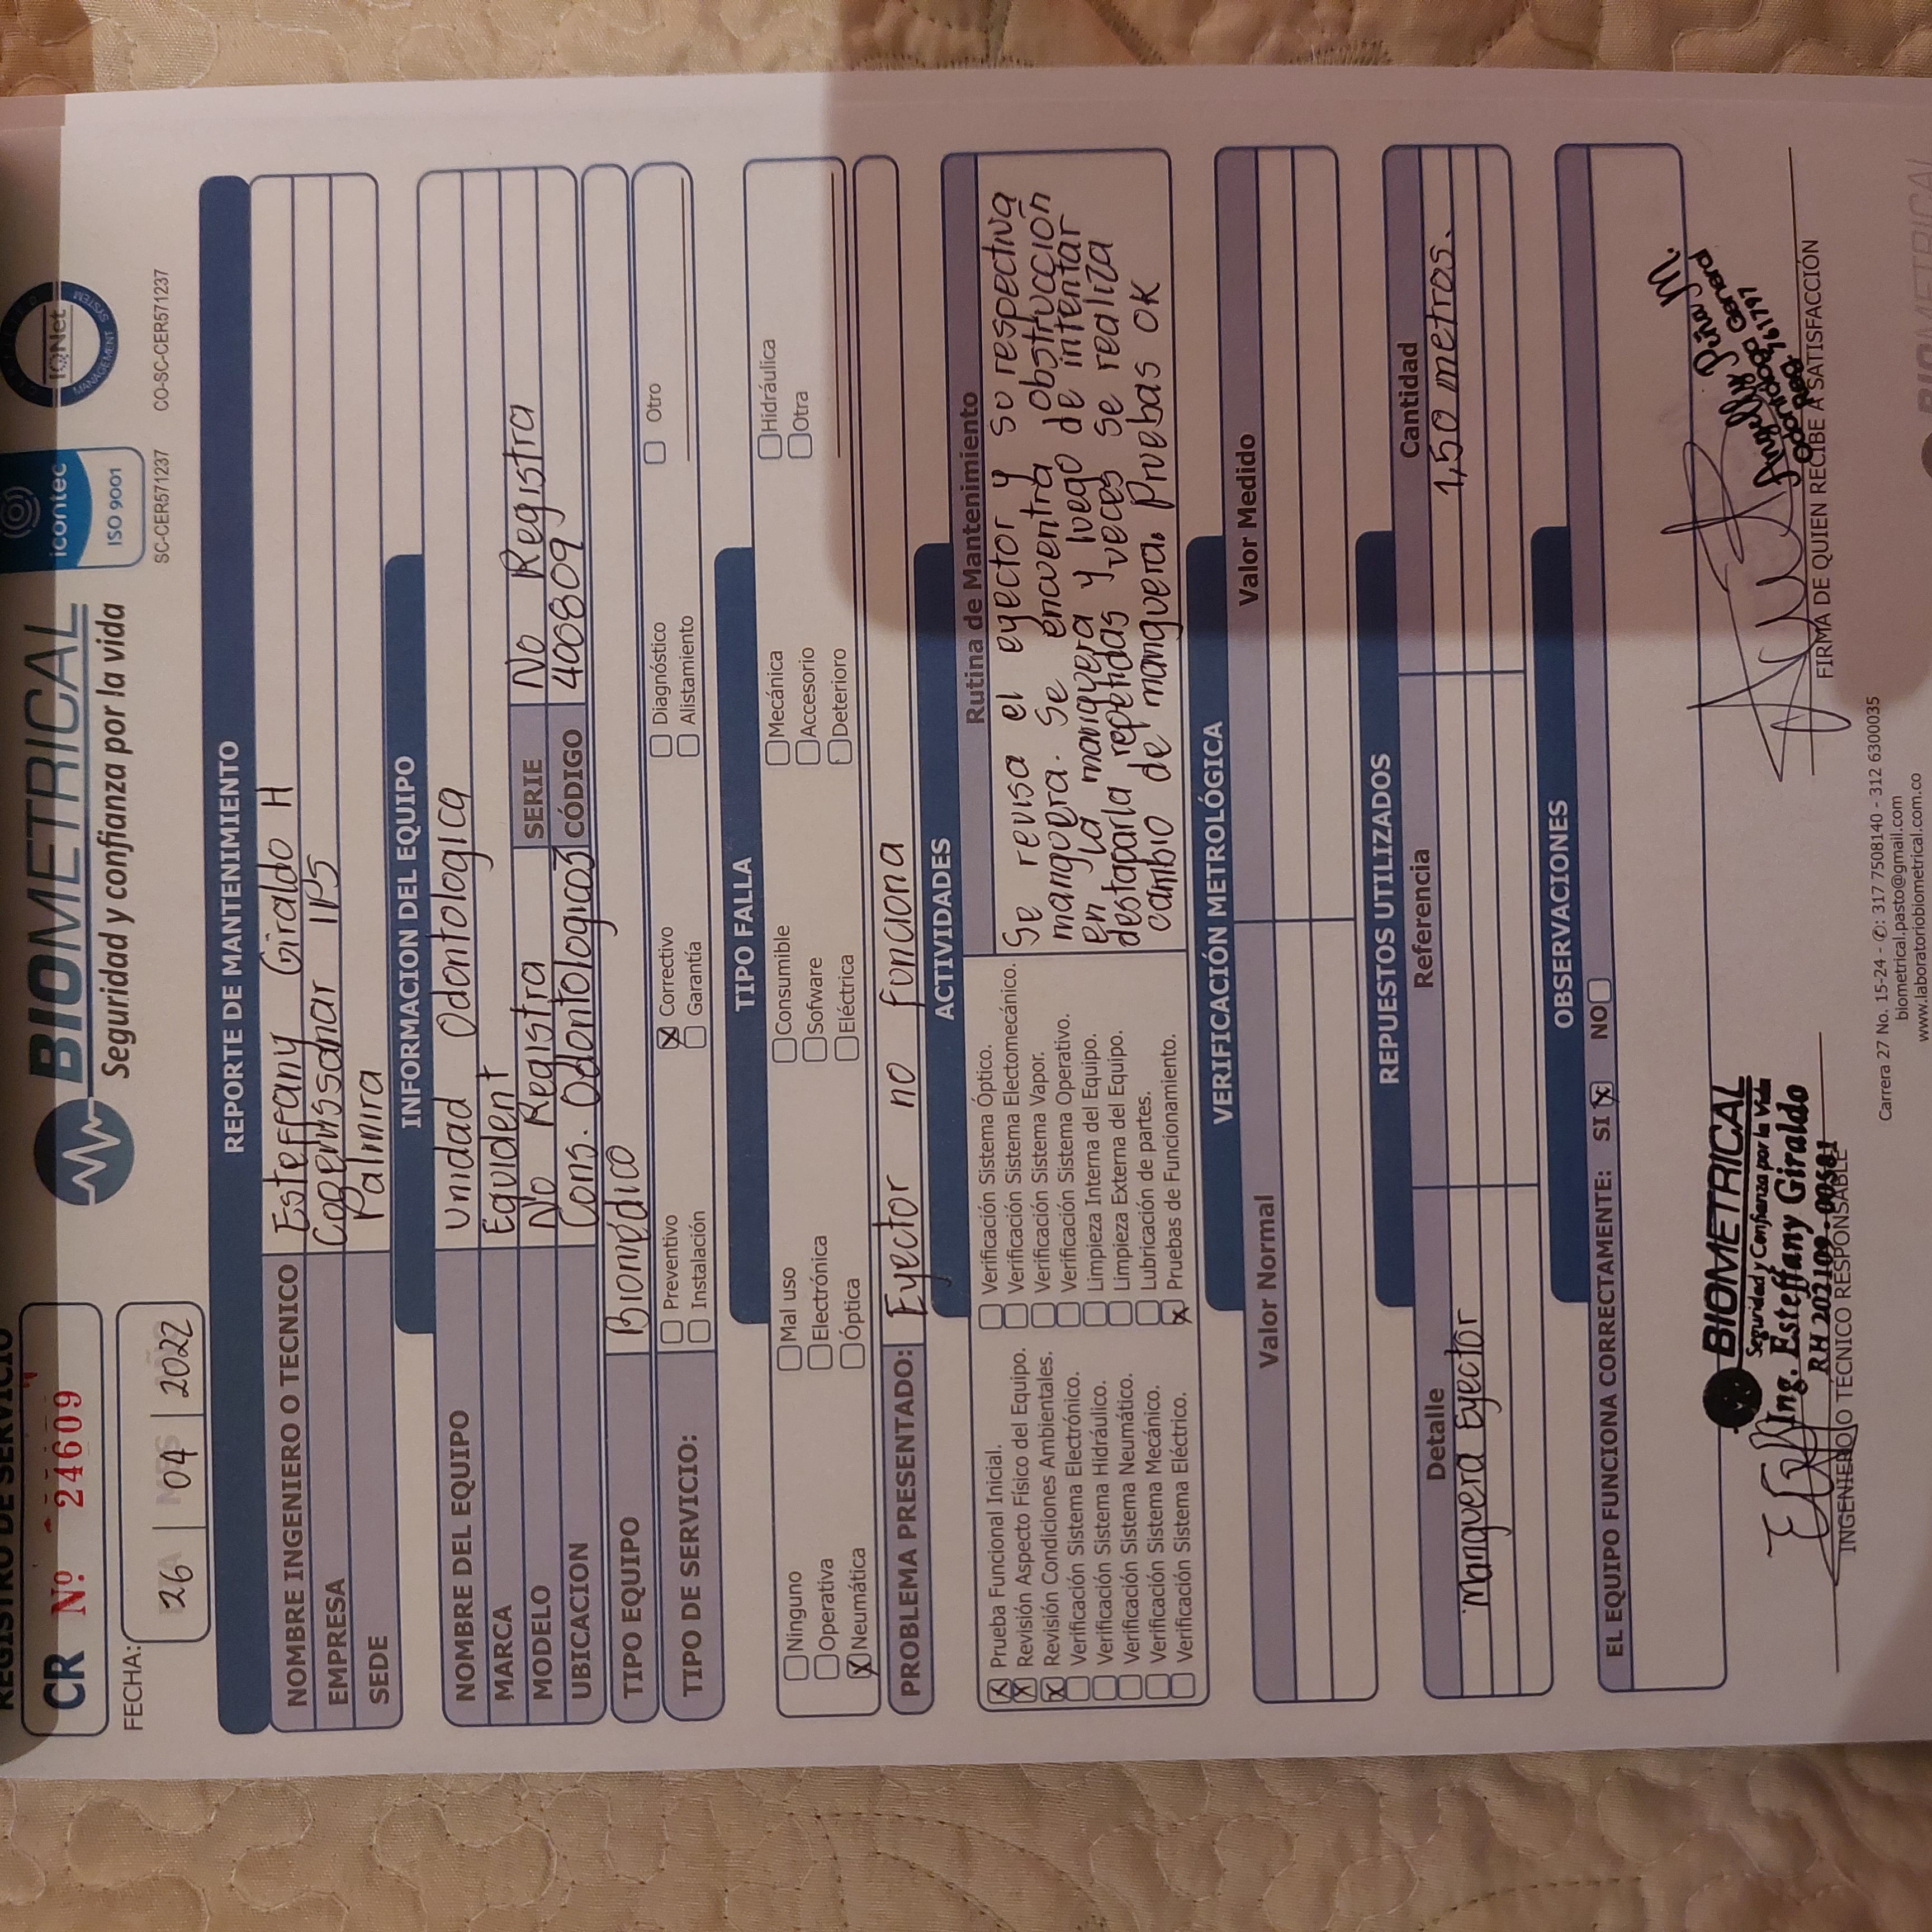 REGISTRO DE SERVICIO
CR Nº 24609
BIOMETRICAL
Seguridad y confianza por la vida
icontec
ISO 9001
SC-CER571237
IQNet
MANAGEMENT SYSTEM
CO-SC-CER571237
FECHA:
DIA MES AÑO
26 04 2022
REPORTE DE MANTENIMIENTO
NOMBRE INGENIERO O TECNICO Esteffany Giraldo H
EMPRESA Cogemssanar IPS
SEDE Palmira
INFORMACION DEL EQUIPO
NOMBRE DEL EQUIPO Unidad Odontologica
MARCA Equident
MODELO No Registra SERIE No Registra
UBICACION Cons. Odontologico3 CÓDIGO 400809
TIPO EQUIPO Biomédico
TIPO DE SERVICIO:
Preventivo Correctivo Diagnóstico Otro
Instalación Garantía Alistamiento
TIPO FALLA
Ninguno Mal uso Consumible Mecánica Hidráulica
Operativa Electrónica Sofware Accesorio Otra
Neumática Óptica Eléctrica Deterioro
PROBLEMA PRESENTADO: Eyector no funciona
ACTIVIDADES
Prueba Funcional Inicial.
Revisión Aspecto Físico del Equipo.
Revisión Condiciones Ambientales.
Verificación Sistema Electrónico.
Verificación Sistema Hidráulico.
Verificación Sistema Neumático.
Verificación Sistema Mecánico.
Verificación Sistema Eléctrico.
Verificación Sistema Óptico.
Verificación Sistema Electomecánico.
Verificación Sistema Vapor.
Verificación Sistema Operativo.
Limpieza Interna del Equipo.
Limpieza Externa del Equipo.
Lubricación de partes.
Pruebas de Funcionamiento.
Rutina de Mantenimiento
Se revisa el eyector y su respectiva
manguera. Se encuentra obstrucción
en la manguera y luego de intentar
destaparla repetidas veces se realiza
cambio de manguera. Pruebas OK
VERIFICACIÓN METROLÓGICA
Valor Normal Valor Medido
REPUESTOS UTILIZADOS
Detalle Referencia Cantidad
Manguera Eyector 1,50 metros.
OBSERVACIONES
EL EQUIPO FUNCIONA CORRECTAMENTE: SI NO
BIOMETRICAL
Seguridad y Confianza por la Vida
Ing. Esteffany Giraldo
RH 202109-00581
INGENIERO O TÉCNICO RESPONSABLE
Angelly Peña M.
Odontóloga General
Reg. 761797
FIRMA DE QUIEN RECIBE A SATISFACCIÓN
Carrera 27 No. 15-24 - ✆: 317 7508140 - 312 6300035
biometrical.pasto@gmail.com
www.laboratoriobiometrical.com.co
BIOMETRICAL